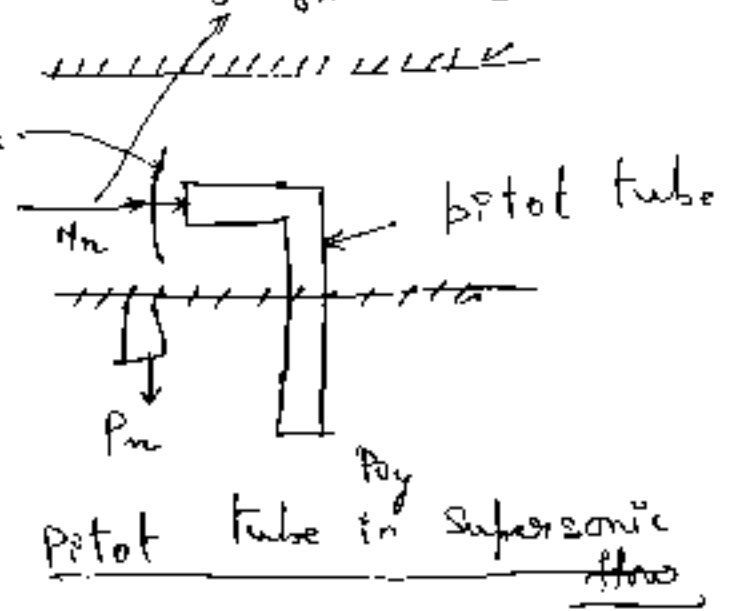 pitot tube
Mx
Px
Poy
Pitot tube in Supersonic
flow